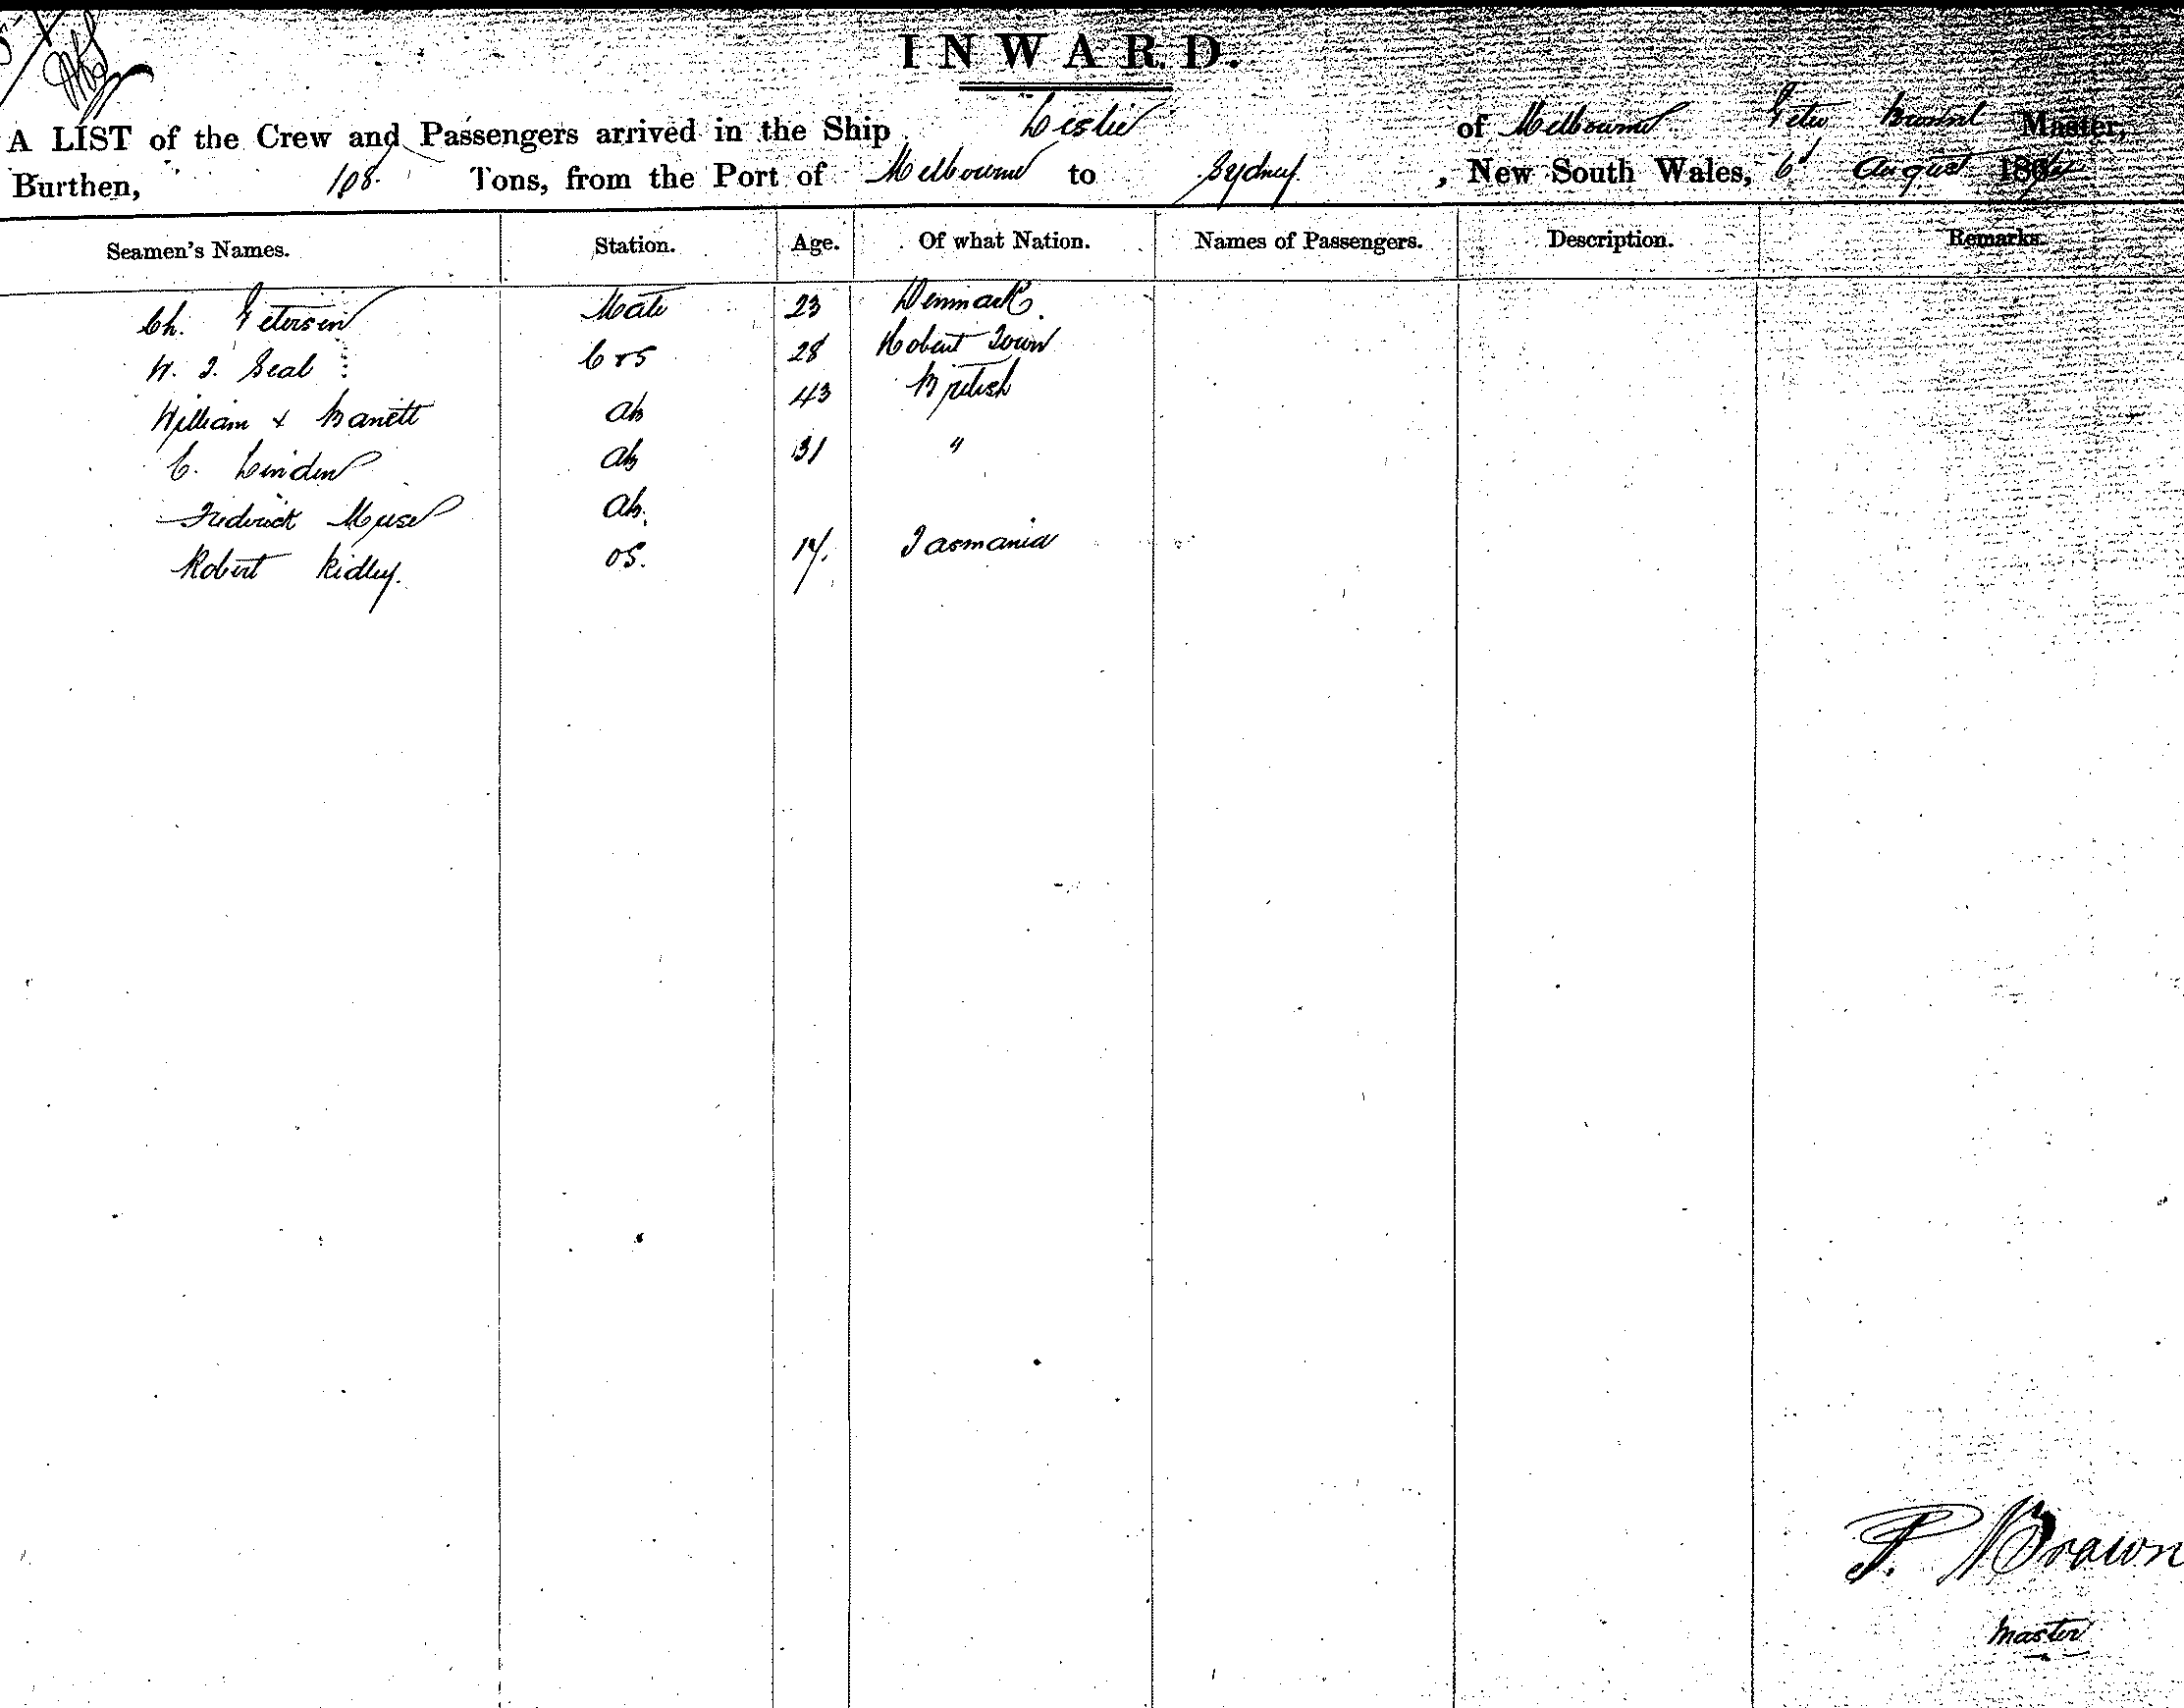 INWARD.
A LIST of the Crew and Passengers arrived in the Ship Leslie of Melbourne Peter Master,
Burthen, 108 Tons, from the Port of Melbourne to Sydney, New South Wales, 6th August 186
Seamen's Names. Station. Age. Of what Nation. Names of Passengers. Description. Remarks.
Ch. Petersen Mate 23 Denmark.
W. J. Seal C & S 28 Hobart Town
William + Barrett AB 43 British
C. Linden AB 31 "
Frederick AB.
Robert Ridley. OS. Tasmania
P. Brown
Master